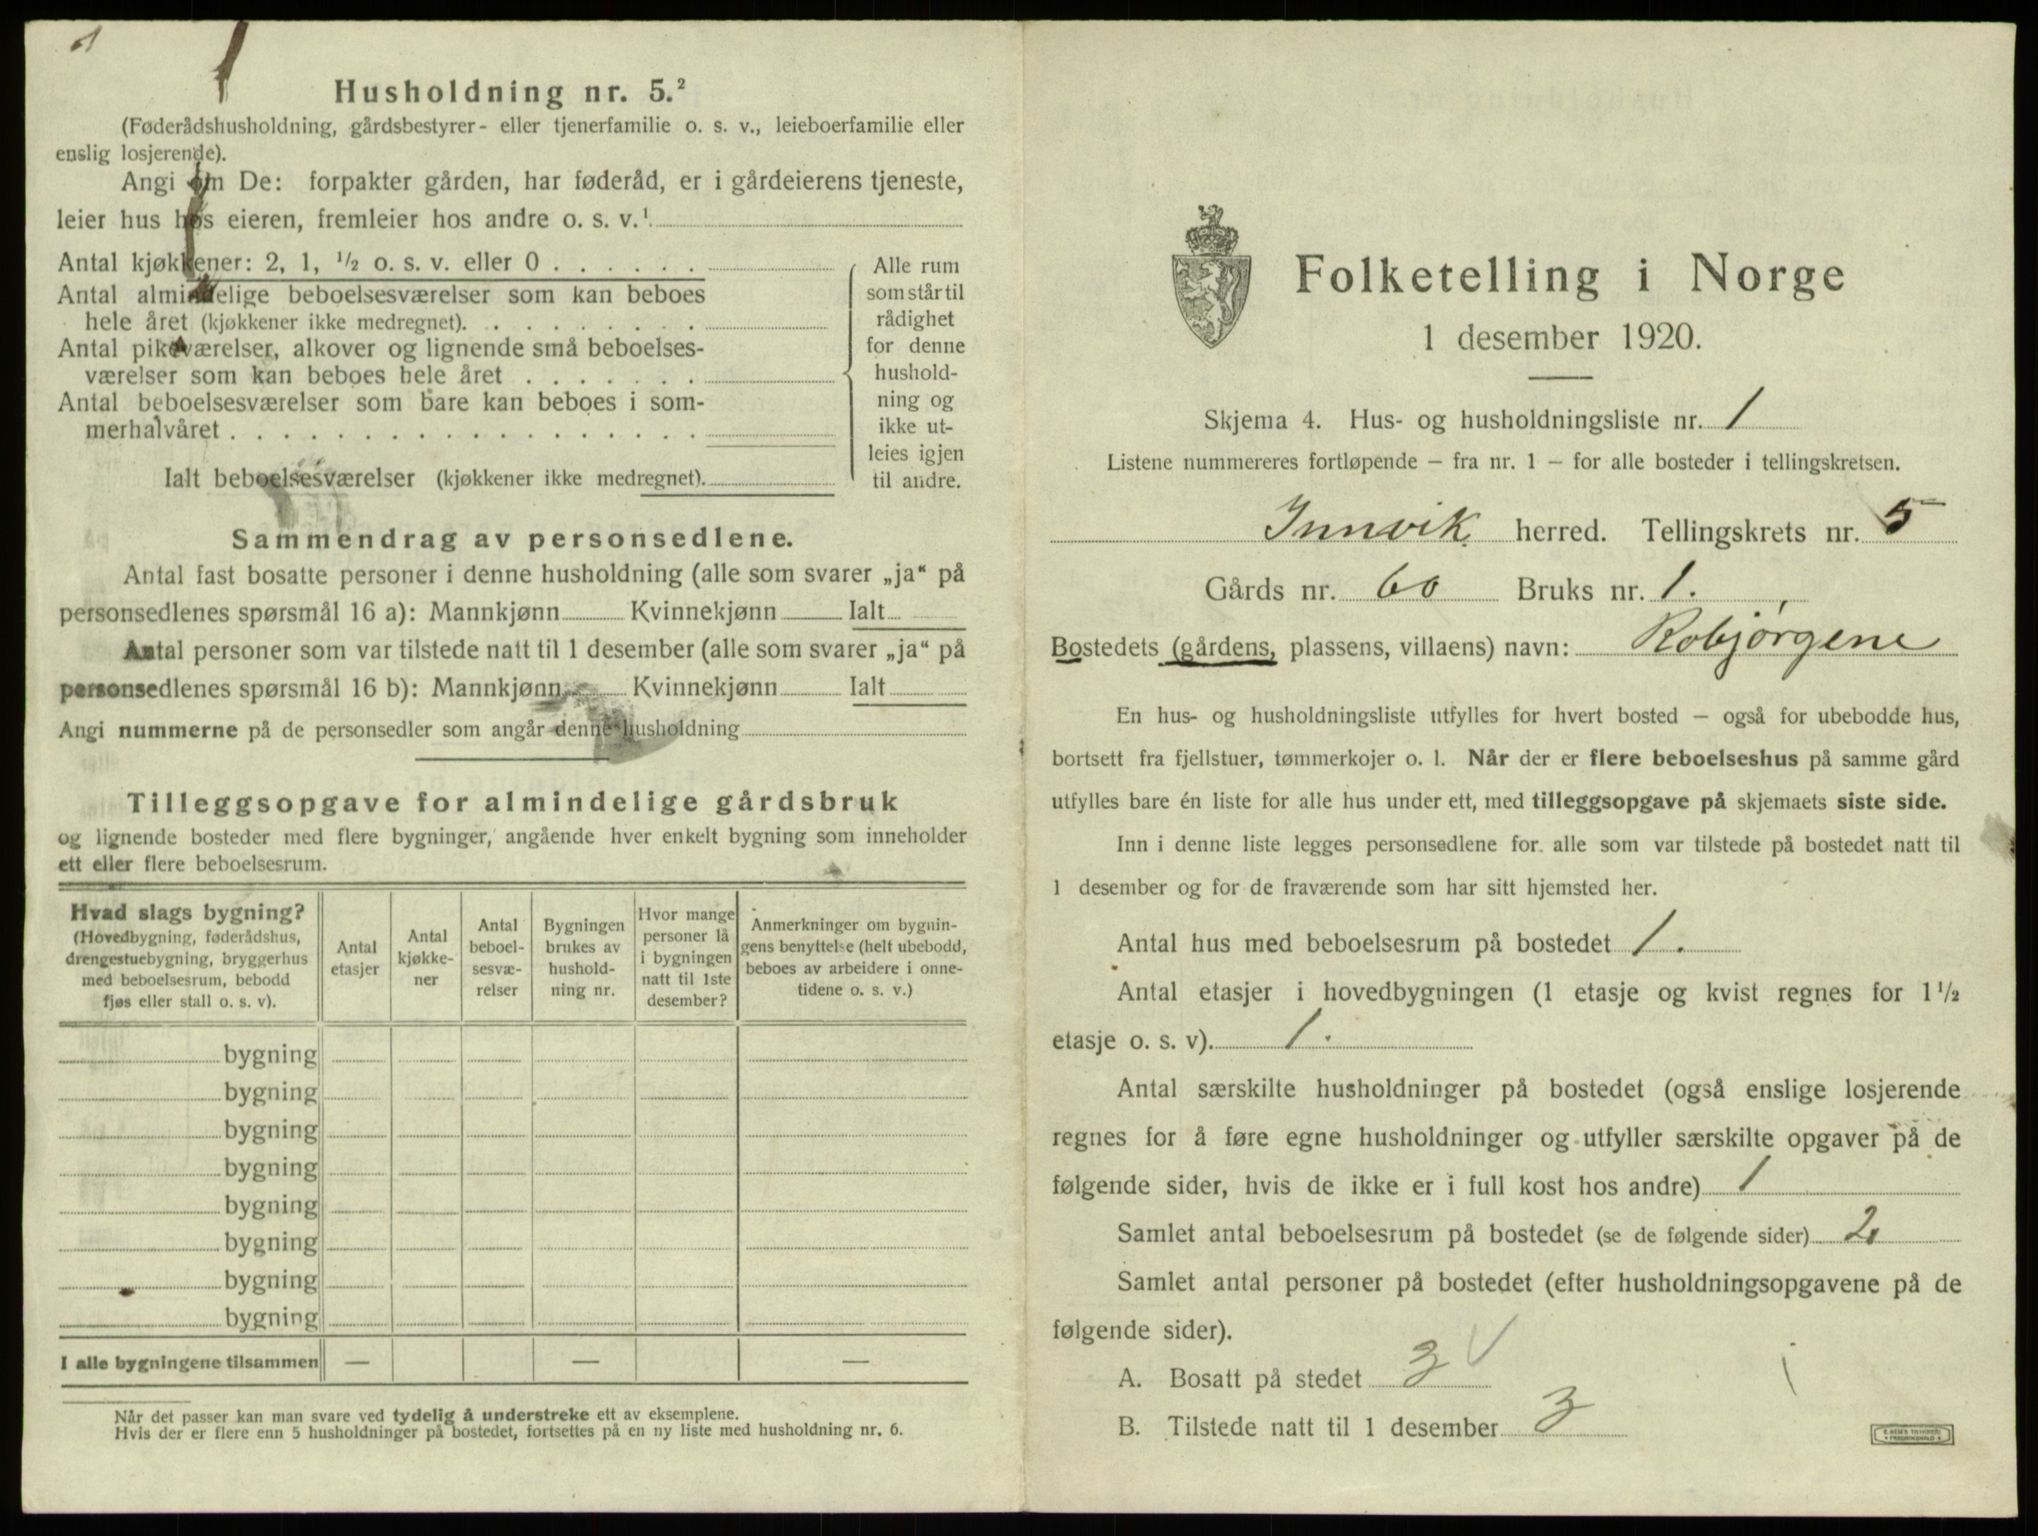 Husholdning nr. 5.²
(Føderådshusholdning, gårdsbestyrer- eller tjenerfamilie o. s. v., leieboerfamilie eller
enslig losjerende).
Angi om De: forpakter gården, har føderåd, er i gårdeierens tjeneste,
leier hus hos eieren, fremleier hos andre o. s. v.¹
Antal kjøkkener: 2, 1, ½ o. s. v. eller 0
Antal almindelige beboelsesværelser som kan beboes
hele året (kjøkkener ikke medregnet).
Antal pikeværelser, alkover og lignende små beboelses-
værelser som kan beboes hele året
Antal beboelsesværelser som bare kan beboes i som-
merhalvåret
Ialt beboelsesværelser (kjøkkener ikke medregnet).
Alle rum
som står til
rådighet
for denne
hushold-
ning og
ikke ut-
leies igjen
til andre.
Sammendrag av personsedlene.
Antal fast bosatte personer i denne husholdning (alle som svarer „ja“ på
personsedlenes spørsmål 16 a): Mannkjønn Kvinnekjønn Ialt
Antal personer som var tilstede natt til 1 desember (alle som svarer „ja“ på
personsedlenes spørsmål 16 b): Mannkjønn Kvinnekjønn Ialt
Angi nummerne på de personsedler som angår denne husholdning
Tilleggsopgave for almindelige gårdsbruk
og lignende bosteder med flere bygninger, angående hver enkelt bygning som inneholder
ett eller flere beboelsesrum.
Hvad slags bygning?
(Hovedbygning, føderådshus,
drengestuebygning, bryggerhus
med beboelsesrum, bebodd
fjøs eller stall o. s. v).
Antal
etasjer
Antal
kjøkke-
ner
Antal
beboel-
sesvæ-
relser
Bygningen
brukes av
hushold-
ning nr.
Hvor mange
personer lå
i bygningen
natt til 1ste
desember?
Anmerkninger om bygnin-
gens benyttelse (helt ubebodd,
beboes av arbeidere i onne-
tidene o. s. v.)
bygning
bygning
bygning
bygning
bygning
bygning
bygning
bygning
I alle bygningene tilsammen — — —
Når det passer kan man svare ved tydelig å understreke ett av eksemplene.
Hvis der er flere enn 5 husholdninger på bostedet, fortsettes på en ny liste med husholdning nr. 6.
Folketelling i Norge
1 desember 1920.
Skjema 4. Hus- og husholdningsliste nr. 1
Listene nummereres fortløpende – fra nr. 1 – for alle bosteder i tellingskretsen.
Innvik herred. Tellingskrets nr. 5
Gårds nr. 60 Bruks nr. 1.
Bostedets (gårdens, plassens, villaens) navn: Robjørgene
En hus- og husholdningsliste utfylles for hvert bosted – også for ubebodde hus,
bortsett fra fjellstuer, tømmerkojer o. l. Når der er flere beboelseshus på samme gård
utfylles bare én liste for alle hus under ett, med tilleggsopgave på skjemaets siste side.
Inn i denne liste legges personsedlene for alle som var tilstede på bostedet natt til
1 desember og for de fraværende som har sitt hjemsted her.
Antal hus med beboelsesrum på bostedet 1.
Antal etasjer i hovedbygningen (1 etasje og kvist regnes for 1½
etasje o. s. v). 1.
Antal særskilte husholdninger på bostedet (også enslige losjerende
regnes for å føre egne husholdninger og utfyller særskilte opgaver på de
følgende sider, hvis de ikke er i full kost hos andre) 1
Samlet antal beboelsesrum på bostedet (se de følgende sider) 2
Samlet antal personer på bostedet (efter husholdningsopgavene på de
følgende sider).
A. Bosatt på stedet 3
B. Tilstede natt til 1 desember 3